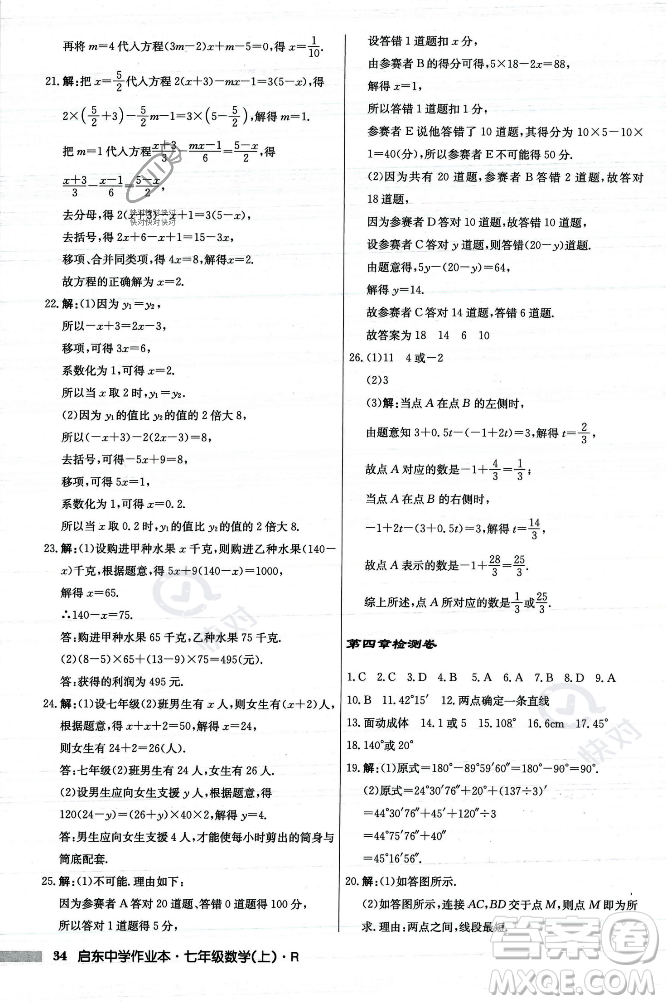 再将 m=4 代人方程(3m-2)x+m-5=0,得 x=1/10.
21.解:把 x=5/2 代人方程 2(x+3)-mx-1=3(5-x),得
2×(5/2+3)-5/2m-1=3×(5-5/2),解得 m=1.
把 m=1 代人方程(x+3)/3-(mx-1)/6=(5-x)/2,得
(x+3)/3-(x-1)/6=(5-x)/2.
去分母,得 2(x+3)-(x-1)=3(5-x).
去括号,得 2x+6-x+1=15-3x.
移项、合并同类项,得 4x=8.
系数化为 1,得 x=2.
故方程的正确解为 x=2.
22.解:(1)因为 y₁=y₂,
移项,可得 3x=6,
系数化为 1,可得 x=2.
所以当 x 取 2 时,y₁=y₂.
(2)因为 y₁的值比 y₂的值的 2 倍大 8,
移项,合并同类项,得 5x=1,
系数化为 1,可得 x=0.2.
所以当 x 取 0.2 时,y₁的值比 y₂的值的 2 倍大 8.
23.解:(1)设购进甲种水果 x 千克,则购进乙种水果(140-
x)千克,根据题意,得 5x+9(140-x)=1000,
解得 x=65.
∴140-x=75.
答:购进甲种水果 65 千克,乙种水果 75 千克.
(2)(8-5)×65+(13-9)×75=495(元).
答:获得的利润为 495 元.
24.解:(1)设七年级(2)班男生有 x 人,则女生有(x+2)人,
根据题意,得 x+x+2=50,解得 x=24.
则女生有 24+2=26(人).
答:七年级(2)班男生有 24 人,女生有 26 人.
(2)设男生应向女生支援 y 人,由题意得
120(24-y)=(26+y)×40×2,解得 y=4.
答:男生应向女生支援 4 人,才能使每小时剪出的筒身与
筒底配套.
25.解:(1)不可能.理由如下:
答对 1 道题得 100÷20=5(分).
设答错 1 道题得 x 分,
由参赛者 B 的得分,得 5×18-2x=88,
解得 x=1.
所以答错 1 道题扣 1 分.
参赛者 E 说他答错了 10 道题,得分为 10×5-10×
1=40(分),所以参赛者 E 的说法不可能.
(2)因为共有 20 道题,参赛者 B 答错 2 道题,故答对
18 道题.
因为参赛者 D 答对、答错的题数相同,
所以参赛者 D 答对 10 道题.
设参赛者 C 答对 y 道题,则答错(20-y)道题.
由题意,得 5y-(20-y)=64.
解得 y=14.
故参赛者 C 答对 14 道题,答错 6 道题.
故答案为 18 14 6 10
26.(1)11 4 或-2
(2)3
(3)解:当点 A 在点 B 的左侧时,
由题意知 3+0.5t-(-1+2t)=3,解得 t=2/3,
故点 A 对应的数是-1+4/3=1/3;
当点 A 在点 B 的右侧时,
-1+2t-(3+0.5t)=3,解得 t=14/3,
故点 A 表示的数是-1+28/3=25/3.
综上所述,点 A 对应的数是1/3或25/3.
第四章检测卷
10.B 11.42°15′ 12.两点确定一条直线
13.面动成体 14.1 或 5 15.108° 16.6cm 17.45°
18.140°或 20°
19.解:(1)原式=180°-89°59′60″=90°.
(2)原式=44°30′76″+(137÷3)′
=44°30′76″+45′40″
=44°75′116″
=45°16′56″.
20.解:(1)如答图所示.
(2)如答图所示,连接 AC,BD 交于点 M,则点 M 即为
所求.理由:两点之间,线段最短.
34 启东中学作业本·七年级数学(上)·R